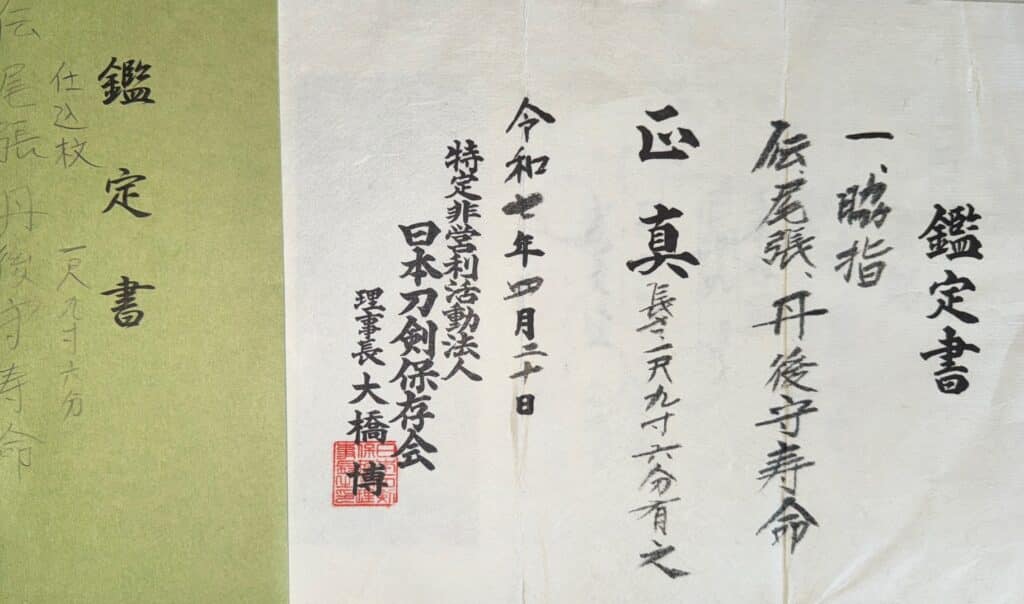 鑑定書
一、脇指
伝、尾張、丹後守寿命
正真
長サ一尺九寸六分有之
令和七年四月二十日
特定非営利活動法人
日本刀剣保存会
理事長 大橋 博
鑑定書
仕込杖 一尺九寸六分
伝尾張丹後守寿命